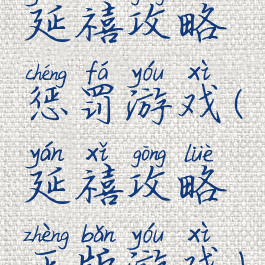 延禧攻略
chéng fá yóu xì
惩罚游戏(
yán xǐ gōng lüè
延禧攻略
zhèng bǎn yóu xì
正版游戏)